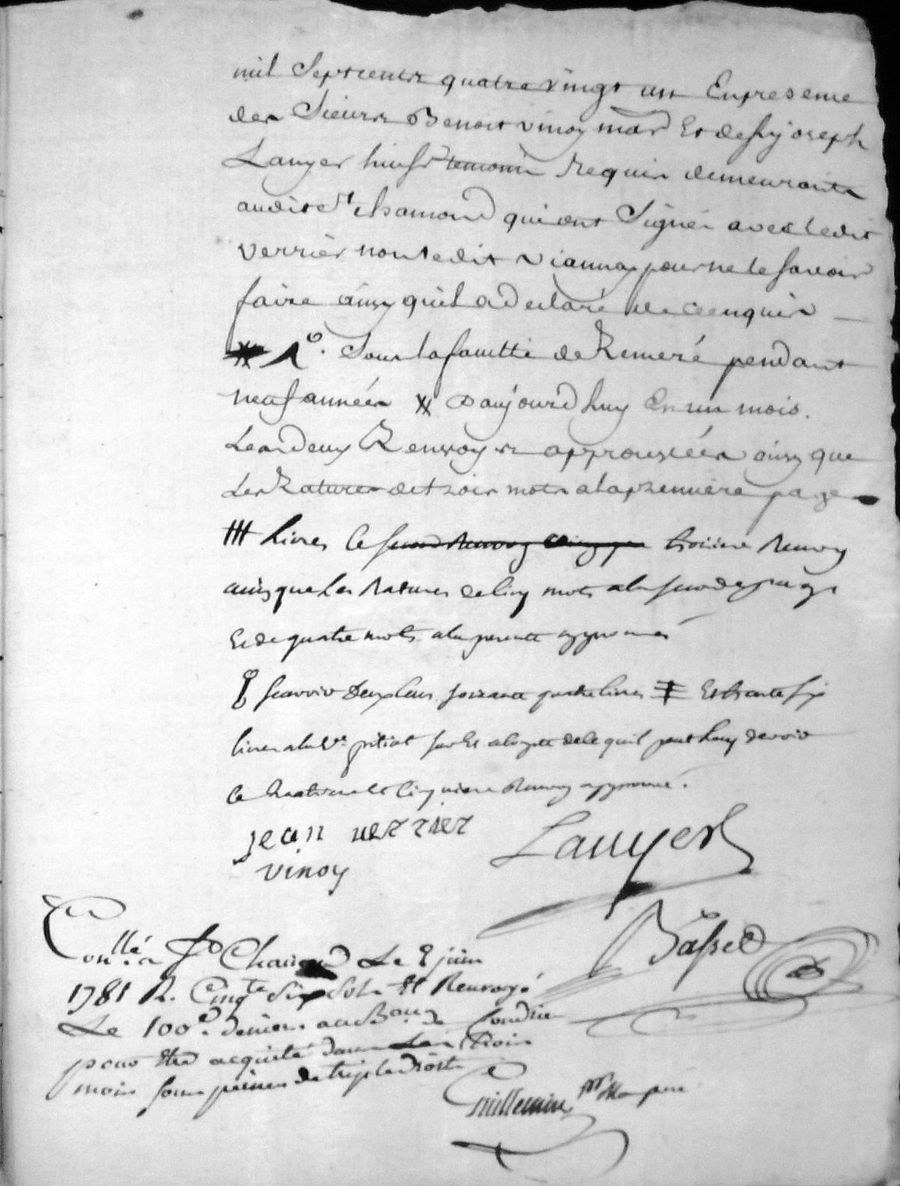 mil Septcents quatre vingt un En presence
des Sieurs Benoit vinoy mār Et de sr joseph
Lauyer huisr temoins Requis demeurants
audit St chamond qui ont Signés avec ledit
verrier non ledit viannay pour ne le savoir
faire ainsy quil a declaré de ce enquis —
1o. Sous la faculté de Remeré pendant
neuf années X D'aujourd huy En un mois.
Les deux Renvoys approuvées ainsy que
Les Ratures de trois mots a la premiere page
livres le troisieme Renvoy
ainsy que les Ratures de cinq mots a la seconde page
Et de quatre mots a la presente approuvés
scavoir deux cens soixante quatre livres Et trente six
livres sur Et a compte de ce quil peut luy devoir
le quatrieme et cinquieme Renvoy approuvé.
jean verrier
vinoy
Lauyer
Basset
Conllé. a St Chamond Le 2 juin
1781 R. Cinq te six Sols Et Renvoyé
Le 100e. denier au Bau. de Condrie
pour Etre acquité dans Les trois
mois sous peines de triple droits
Guillemin pr Mon pere